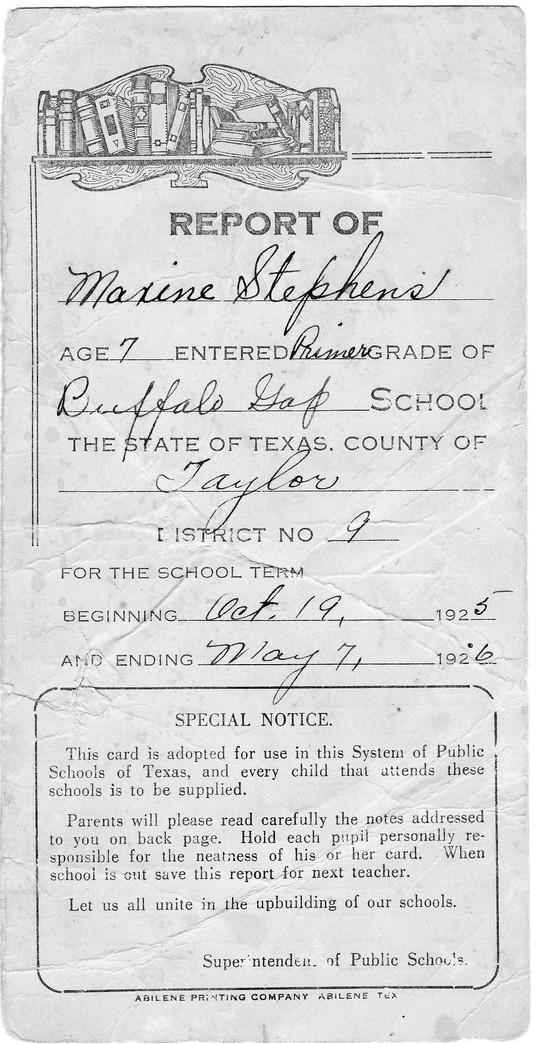 REPORT OF
Maxine Stephens
AGE 7 ENTERED Primer GRADE OF
Buffalo Gap SCHOOL
THE STATE OF TEXAS. COUNTY OF
Taylor
DISTRICT NO 9
FOR THE SCHOOL TERM
BEGINNING Oct. 19, 1925
AND ENDING May 7, 1926
SPECIAL NOTICE.
This card is adopted for use in this System of Public
Schools of Texas, and every child that attends these
schools is to be supplied.
Parents will please read carefully the notes addressed
to you on back page. Hold each pupil personally re-
sponsible for the neatness of his or her card. When
school is out save this report for next teacher.
Let us all unite in the upbuilding of our schools.
Superintendent of Public Schools.
ABILENE PRINTING COMPANY ABILENE TEX